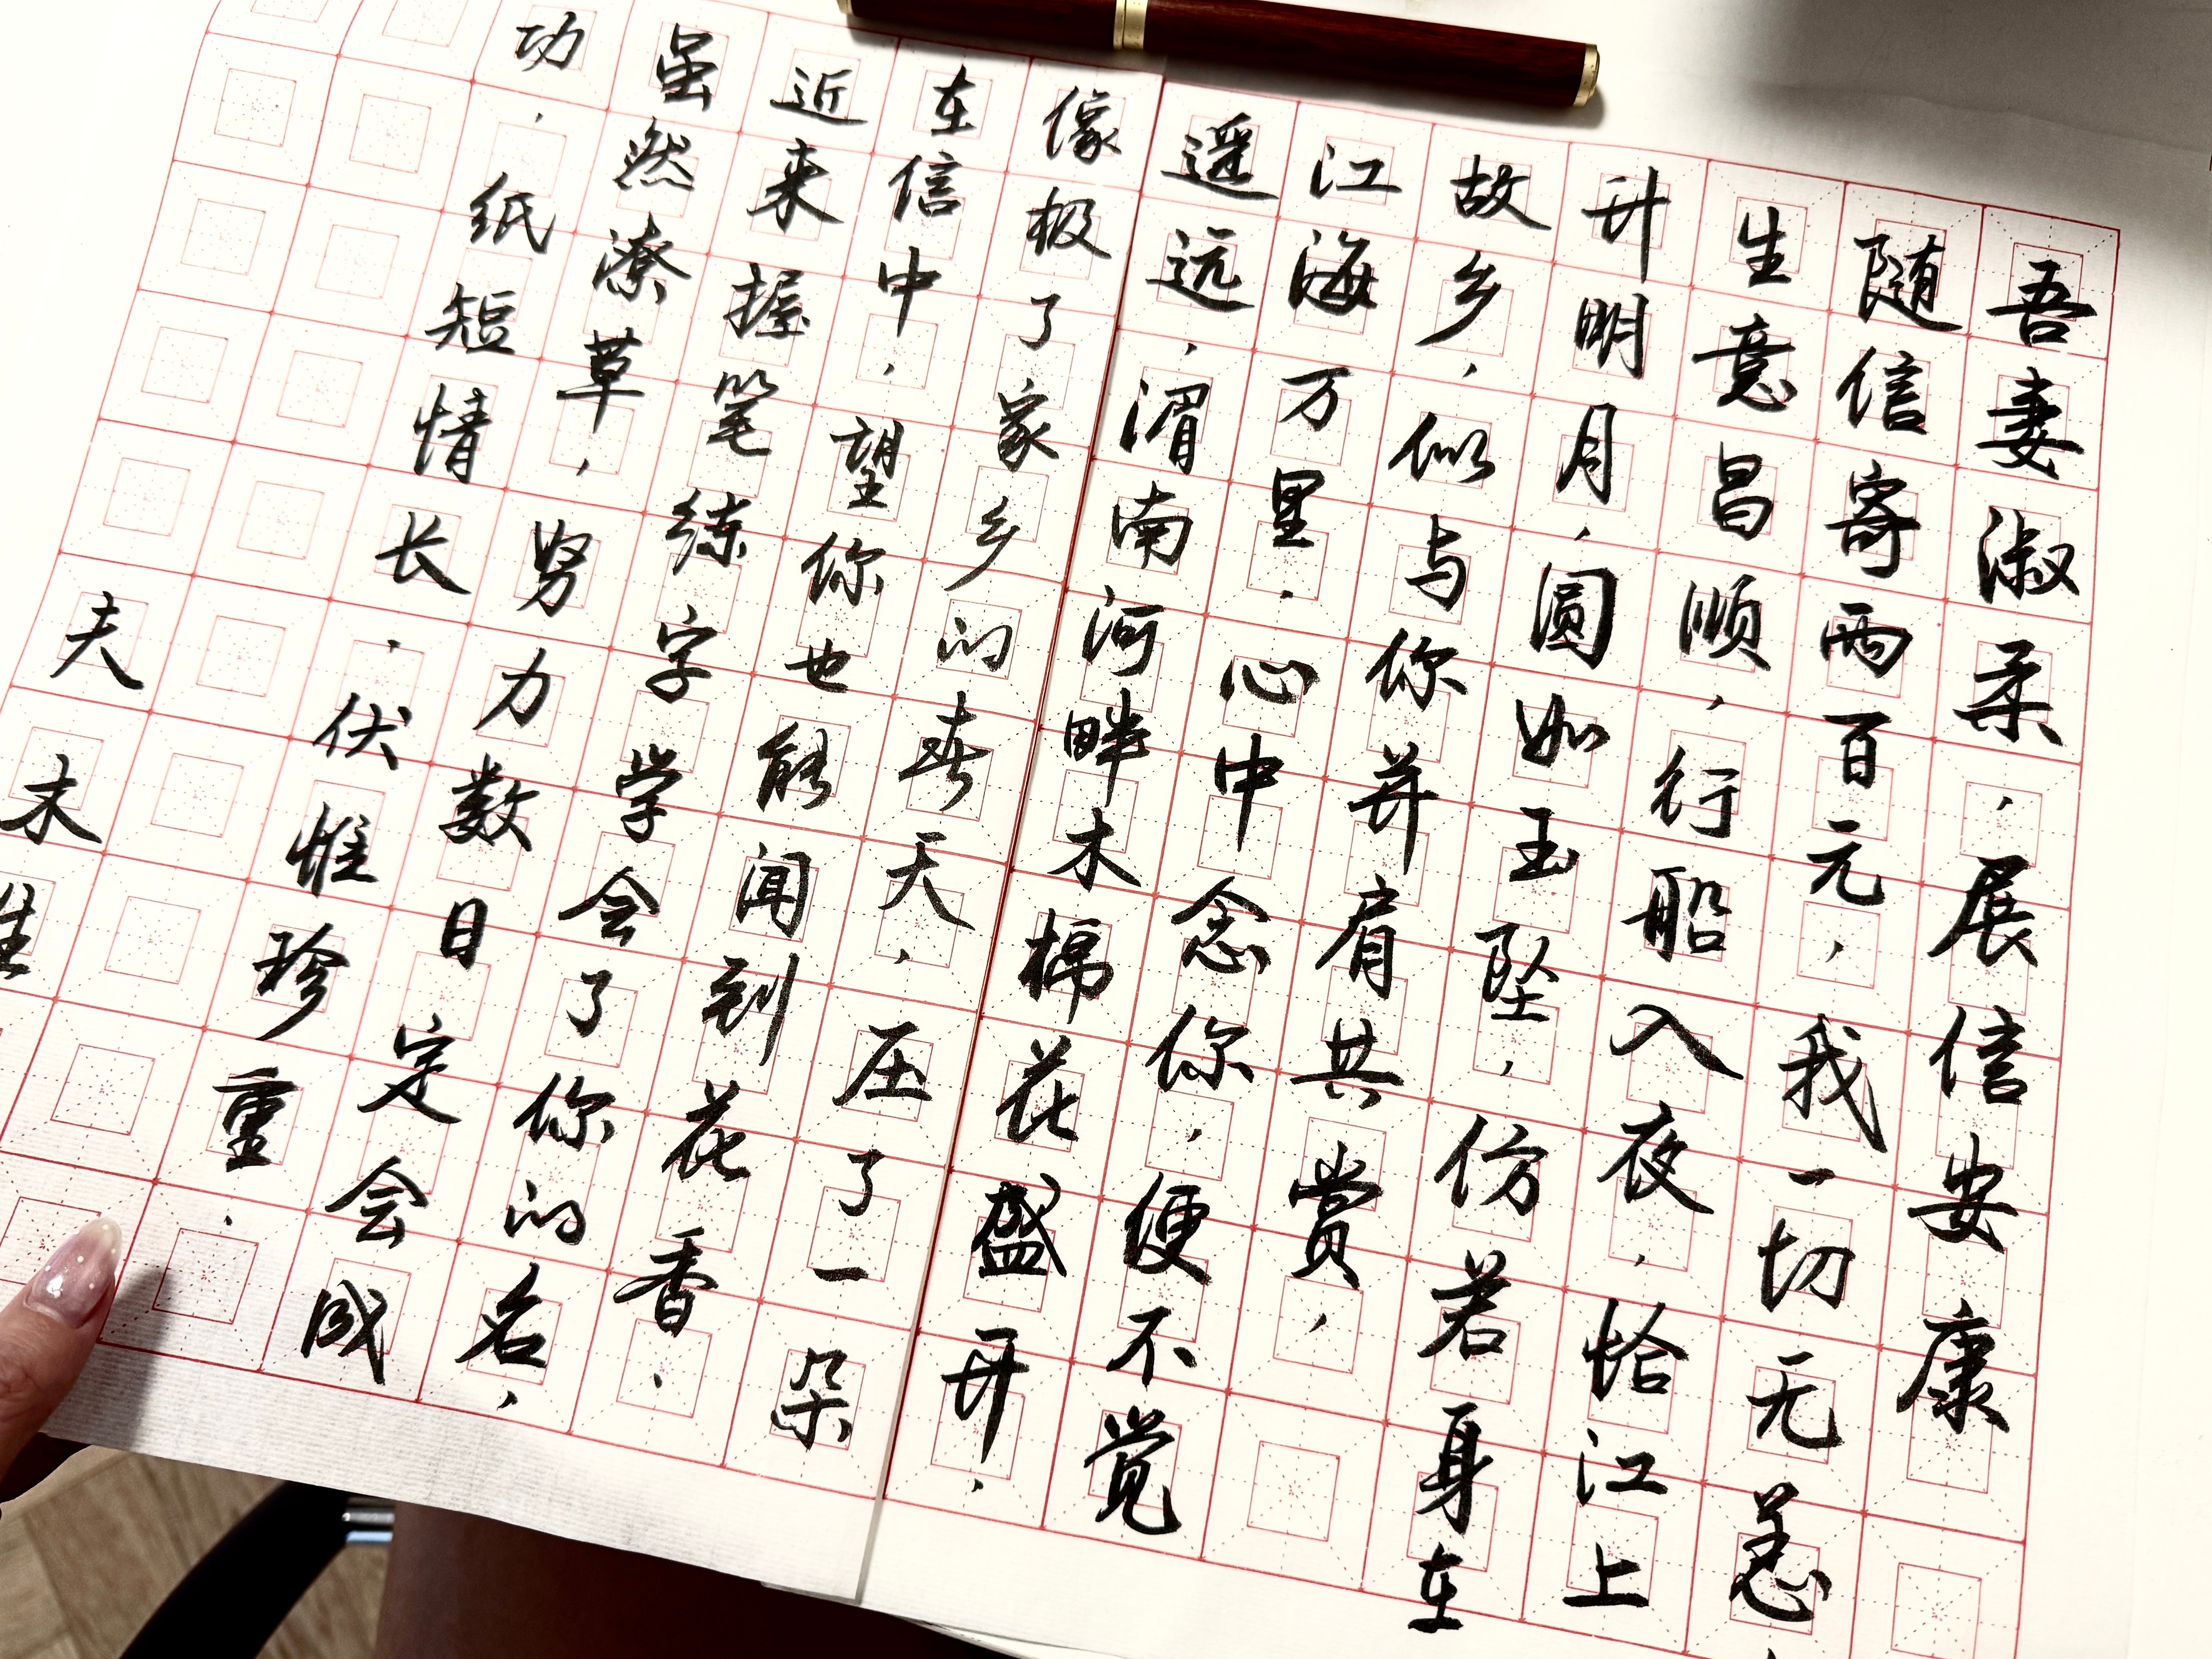 吾妻淑柔，展信安康
随信寄两百元，我一切无恙，
生意昌顺，行船入夜，恰江上
升明月，圆如玉坠，仿若身在
故乡，似与你并肩共赏，
江海万里.心中念你，便不觉
遥远，渭南河畔木棉花盛开.
像极了家乡的春天，压了一朵
在信中，望你也能闻到花香.
近来握笔练字学会了你的名，
虽然潦草，努力数日定会成
功.纸短情长.伏惟珍重.
夫木生